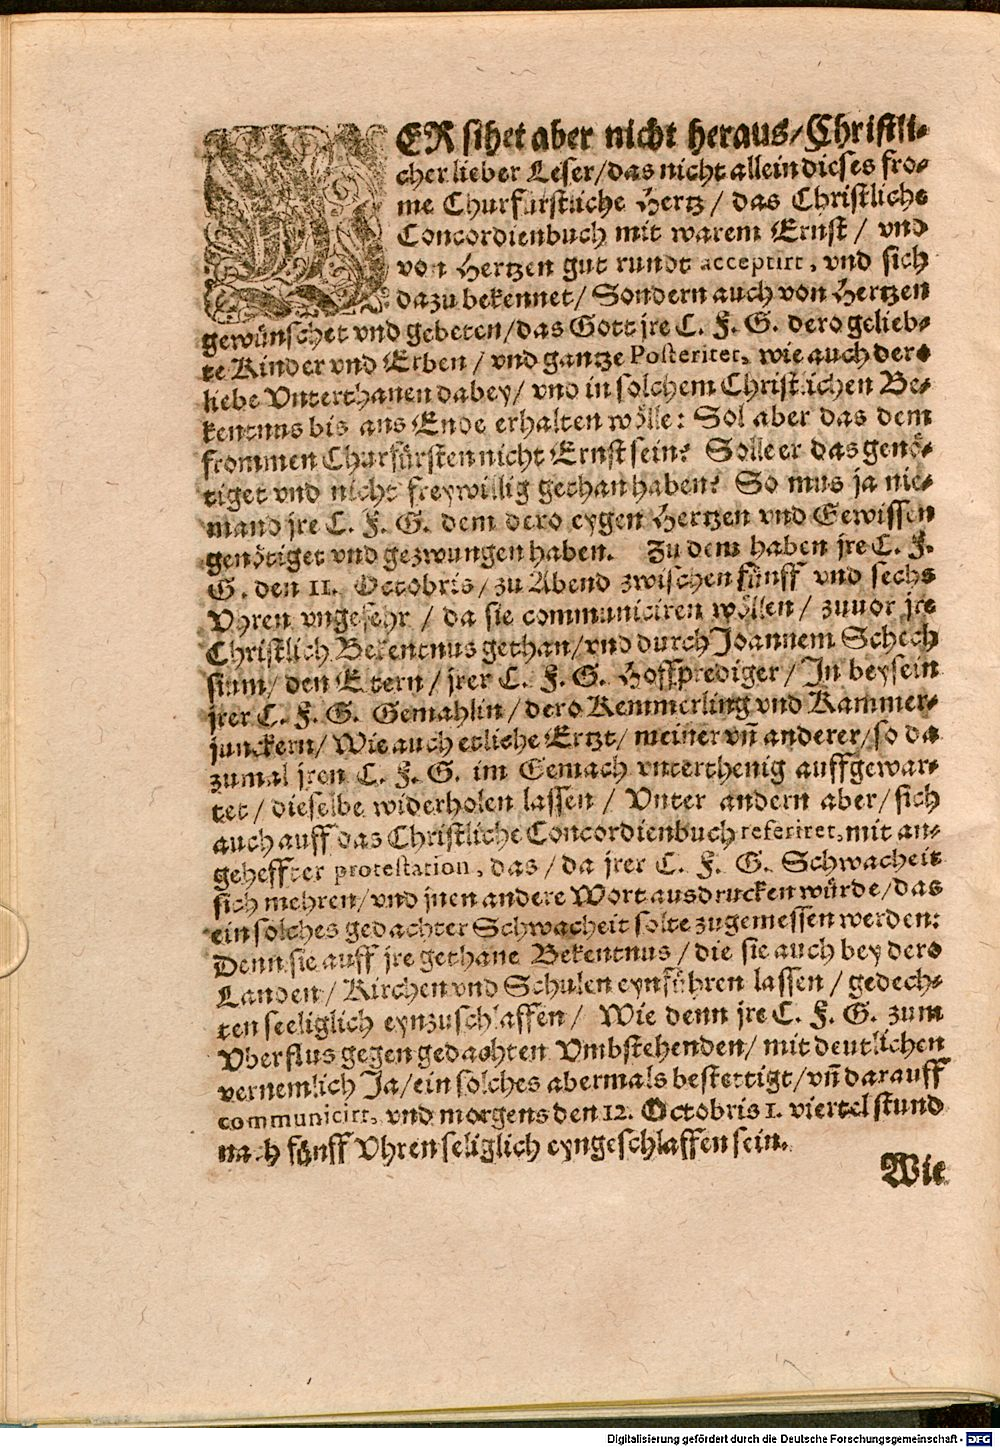 WER sihet aber nicht heraus/Christli-
cher lieber Leser/das nicht allein dieses fro-
me Churfürstliche Hertz / das Christliche
Concordienbuch mit warem Ernst / vnd
von Hertzen gut rundt acceptirt, vnd sich
dazu bekennet/ Sondern auch von Hertzen
gewünschet vnd gebeten/das Gott jre C. F. G. dero gelieb-
te Kinder vnd Erben / vnd gantze Posteritet, wie auch dero
liebe Vnterthanen dabey/ vnd in solchem Christlichen Be-
kentnus bis ans Ende erhalten wölle: Sol aber das dem
frommen Churfürsten nicht Ernst sein? Solle er das genö-
tiget vnd nicht freywillig gethan haben? So mus ja nie-
mand jre C. F. G. dem dero eygen Hertzen vnd Gewissen
genötiget vnd gezwungen haben. Zu dem haben jre C. F.
G. den 11. Octobris/zu Abend zwischen fünff vnd sechs
Vhren vngefehr / da sie communiciren wöllen / zuuor jre
Christlich Bekentnus gethan/vnd durch Joannem Schech
sium/ den Eltern / jrer C. F. G. Hoffprediger / In beysein
jrer C. F. G. Gemahlin / dero Kemmerling vnd Kammer-
junckern/ Wie auch etliche Ertzt/ meiner vn̄ anderer/so da
zumal jren C. F. G. im Gemach vnterthenig auffgewar-
tet / dieselbe widerholen lassen / Vnter andern aber/ sich
auch auff das Christliche Concordienbuch referiret, mit an-
geheffter protestation, das / da jrer C. F. G. Schwacheit
sich mehren/vnd jnen andere Wort ausdrucken würde/das
ein solches gedachter Schwacheit solte zugemessen werden:
Denn sie auff jre gethane Bekentnus / die sie auch bey dero
Landen / Kirchen vnd Schulen eynführen lassen / gedech-
ten seeliglich eynzuschlaffen / Wie denn jre C. F. G. zum
Vberflus gegen gedachten Vmbstehenden/ mit deutlichen
vernemlich Ja/ein solches abermals bestettigt/vn̄ darauff
communicirt, vnd morgens den 12. Octobris 1. viertel stund
nach fünff Vhren seliglich eyngeschlaffen sein.
Wie
Digitalisierung gefördert durch die Deutsche Forschungsgemeinschaft - DFG